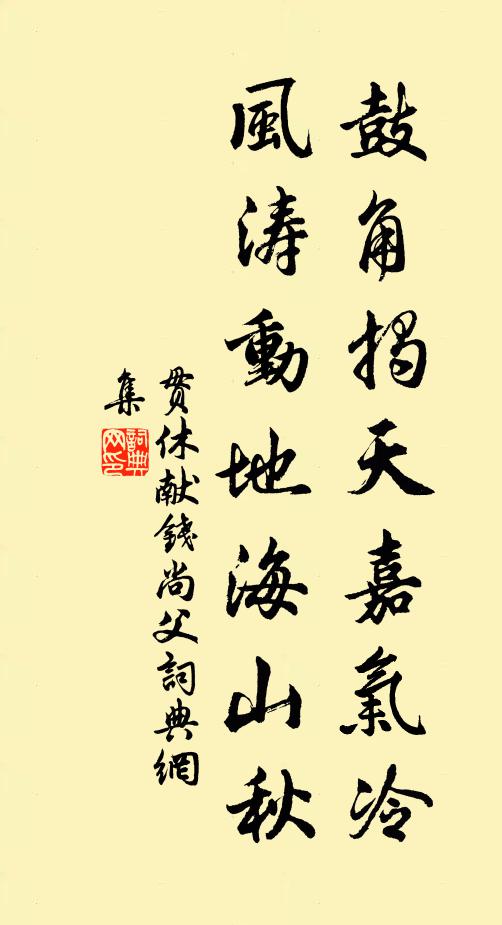 鼓角揭天嘉氣冷
風濤動地海山秋
貫休獻錢尚父詞典網
集
詞典
网印